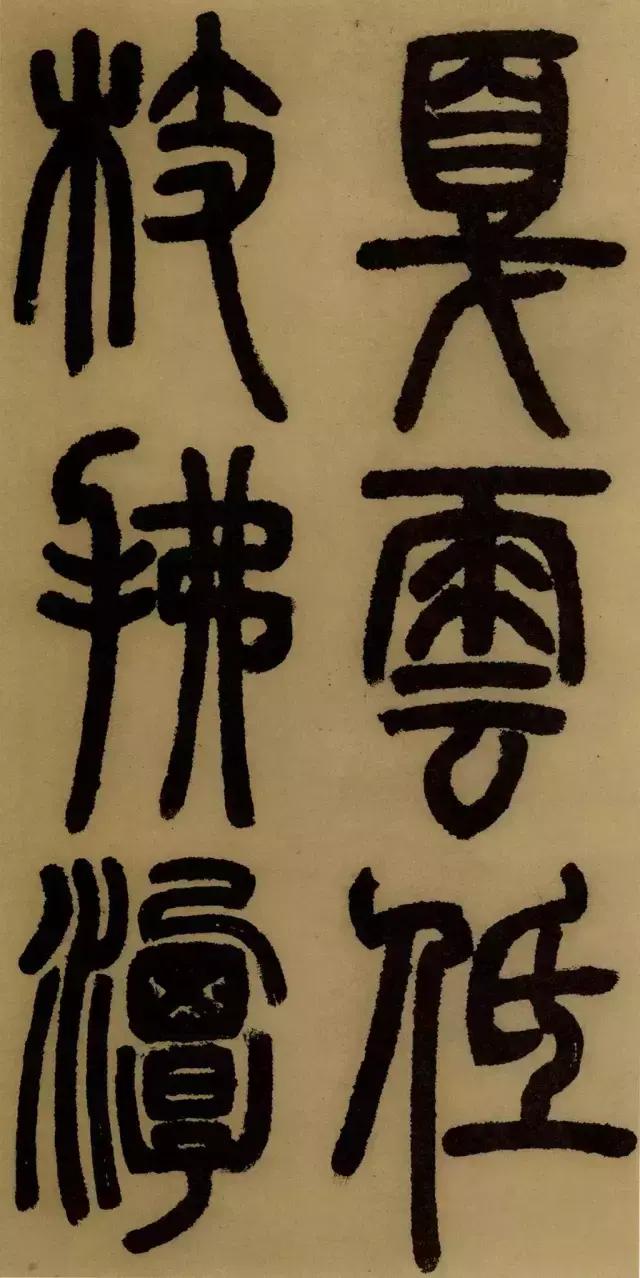 戛雲低
枝拂潭